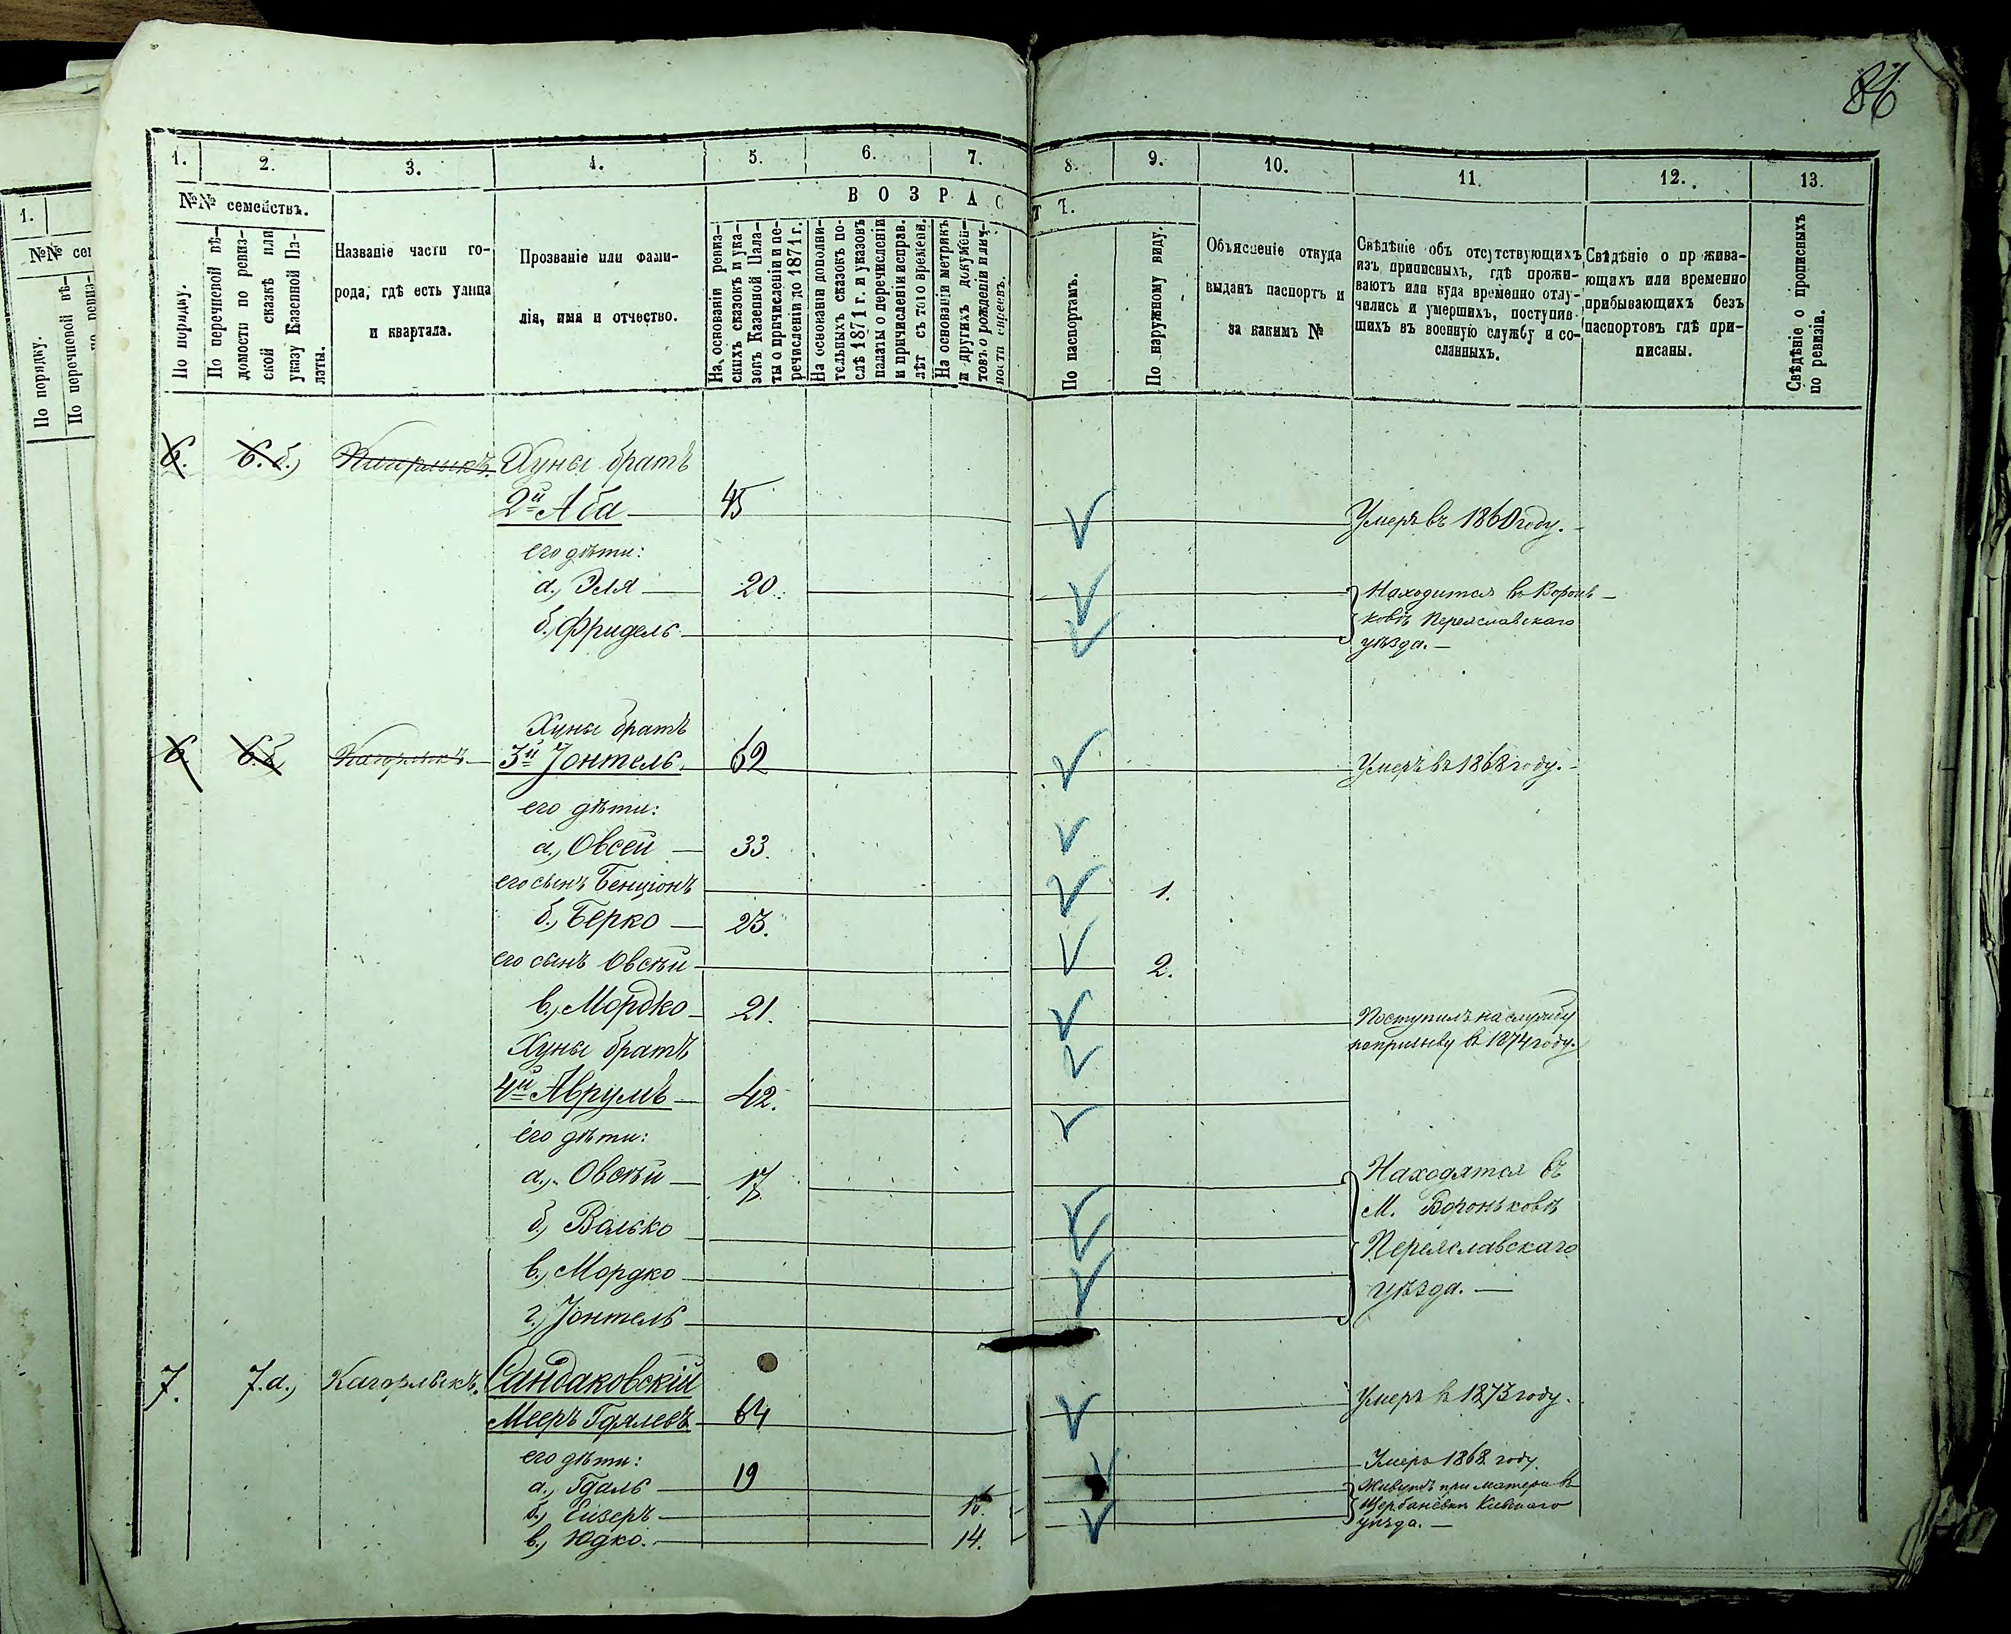 86
1. 2. 3. 4. 5. 6. 7. 8. 9. 10. 11. 12. 13.
№№ семействъ.
ВОЗРАСТЪ.
По порядку.
По перечневой вѣ-
домости по ревиз-
ской сказкѣ или
указу Казенной Па-
латы.
Названіе части го-
рода, гдѣ есть улица
и квартала.
Прозваніе или фами-
лія, имя и отчество.
На основаніи ревиз-
скихъ сказокъ и ука-
зовъ Казенной Пала-
ты о причисленіи и пе-
речисленіи до 1871 г.
На основаніи дополни-
тельныхъ сказокъ по-
слѣ 1871 г. и указовъ
палаты о перечисленіи
и причисленіи исправ.
лѣт съ того времени.
На основаніи метрикъ
и другихъ докумен-
товъ о рожденіи и лич-
ности евреевъ.
По паспортамъ.
По наружному виду.
Объясненіе откуда
выданъ паспортъ и
за какимъ №
Свѣдѣніе объ отсутствующихъ
изъ приписныхъ, гдѣ прожи-
ваютъ или куда временно отлу-
чились и умершихъ, поступив-
шихъ въ военную службу и со-
сланныхъ.
Свѣдѣніе о прожива-
ющихъ или временно
прибывающихъ безъ
паспортовъ гдѣ при-
писаны.
Свѣдѣніе о прописныхъ
по ревизіи.
1.
№№ сем
По порядку.
По перечневой вѣ-
6. 6. б.) Кагарлыкъ. Хуны братъ
2й Аба 45 Умеръ въ 1860 году.
его дѣти:
а., Эля 20. Находится въ Воронь-
б., Фридель ковѣ Переяславскаго
уѣзда.
Хуны братъ
6. 6. Кагарлыкъ 3й Іонтель. 62 Умеръ въ 1868 году.
его дѣти:
а., Овсей 33.
его сынъ Бенціонъ 1.
б., Берко 23.
его сынъ Овсѣй 2.
в., Мордко 21. Поступилъ на службу
Хуны братъ по призыву въ 1874 году.
4й Аврумъ 42.
его дѣти:
а., Овсѣй 17 Находятся въ
б., Волько М. Вороньковѣ
в., Мордко Переяславскаго
г., Іонтель уѣзда.
7. 7. а., Кагарлыкъ. Сандаковскій
Мееръ Гдалевъ 64 Умеръ в 1873 году.
его дѣти:
а., Гдаль 19 Умеръ 1868 году.
б., Ейзеръ 16. Живутъ при матери въ
в., Юдко. 14. Щербаневки Кіевскаго
уѣзда.